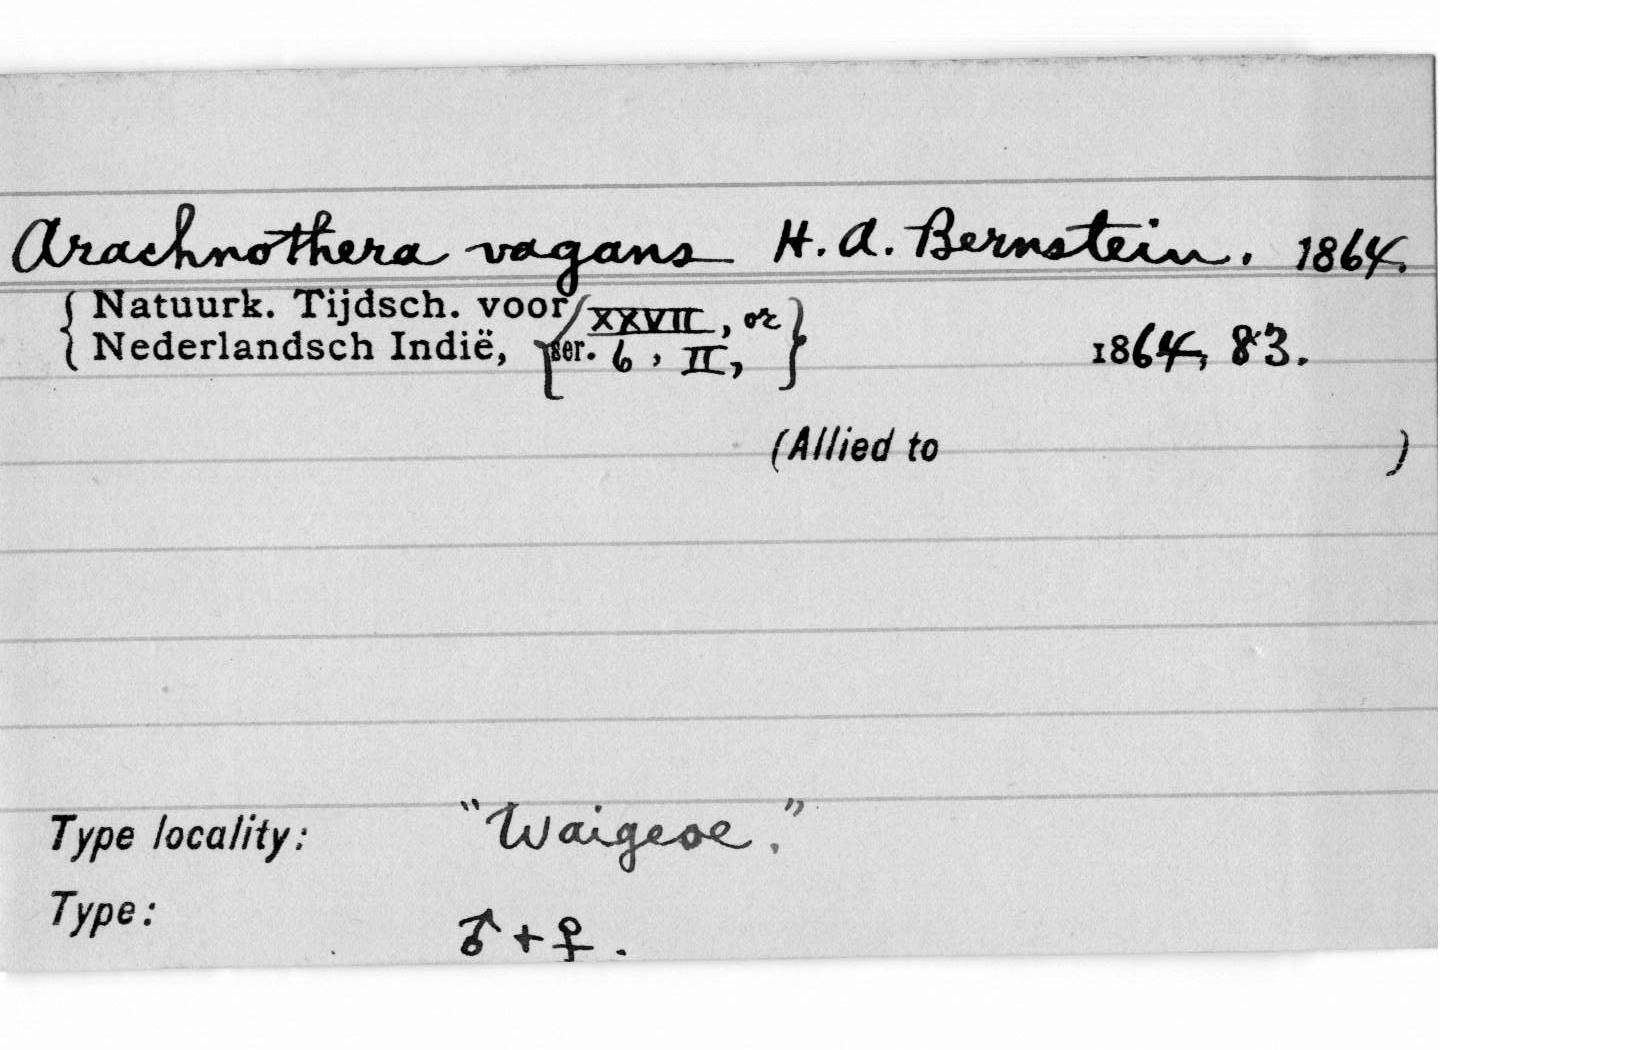 Arachnothera vagans H. A. Bernstein. 1864.
{ Natuurk. Tijdsch. voor { XXVII, or }
{ Nederlandsch Indië, { ser. 6, II, } 1864, 83.
(Allied to )
Type locality: "Waigeoe."
Type: ♂ + ♀.